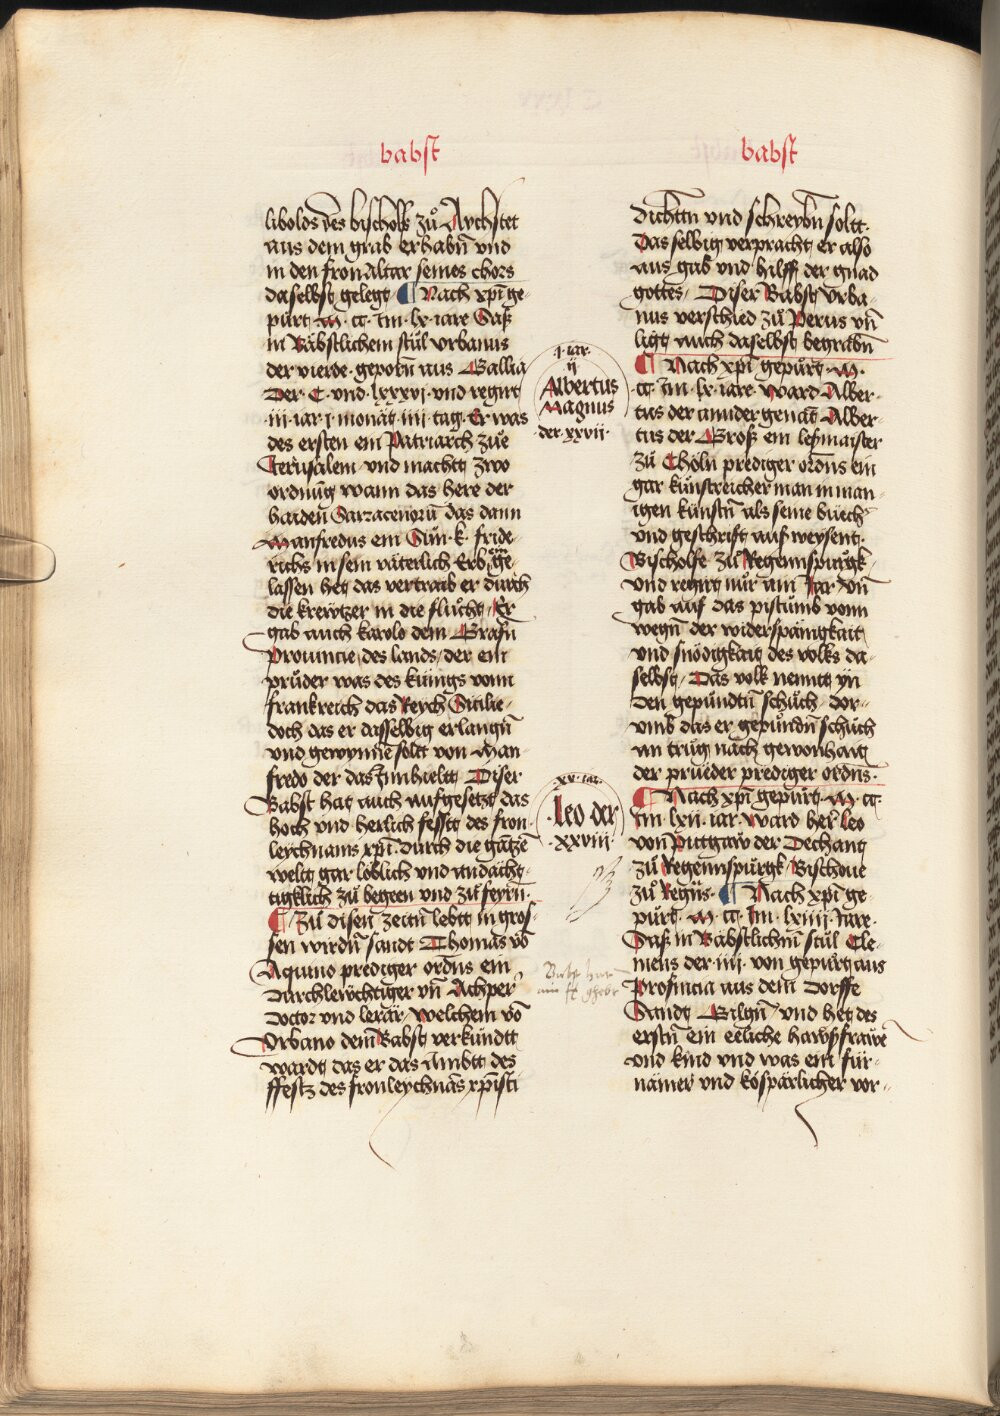 babst
libolds des bischofs zů Aychstet
aus dem grab erhabn̄ vnd
in den fron Altar seines chors
daselbst gelegt ¶ Nach xp̄i ge-
purt M · cc · Im · lx · iare Saß
in Bäbstlichem stůl vrbanus
der vierde · geporn̄ aus Gallia
Der · C · vnd · lxxxvj · vnd regirt
·iij· iar · j · monat · iiij · tag · Er was
des ersten ein Patriarch zůe
Jerusalem / vnd machtt zwo
ordnūg wann das here der
haiden̄ Sarzacenorū das dann
Manfredus ein Sūn · k · fride-
richs in sein väterlich Erb ge-
lassen het das vertraib er durch
die krewtzer in die flůcht / Er
gab auch karolo dem Grafn̄
Prouincie / des lands / der ein
průder was des künigs vonn
frankreich das Reych Sicilie /
doch das er dasselbig erlangn̄
vnd gewynne solt von Man-
fredo der das Inn hieltt Diser
Babst hat auch aufgesetzt das
hoch vnd herlich fesstt des fron-
leychnams xp̄i · durch die gātzē
weltt gar löblich vnd andächt-
tigklich zů begeen vnd zů feyrn̄ ·
¶ Zů disen̄ zeitn̄ lebtt in gros-
sen wirdn̄ sandt Thomas vō
Aquino prediger ordn̄s ein
durchleẅchtiger vn̄ Achper
Doctor vnd lerär / welchem vō
Vrbano dem Babst verkündtt
wardt das er das Ambtt des
ffestz des fronleychnās xp̄isti
·j· iar·
ij
Albertus
Magnus
·der· xxvii·
·xv· iar·
·leo der
·xxviii·
babst
dichttn̄ vnd schreybn̄ soltt ·
Das selbig verpracht er also
aus gab vnd hilff der gnad
gottes / Diser Babst vrba-
nus verschied zů Perus vn̄
ligtt auch daselbst begrabn̄
¶ Nach xp̄i gepůrt · M ·
cc · Im · lx · iare · ward Alber-
tus der annder genāt Alber-
tus der Groß ein leßmaister
zů Chöln prediger ordn̄s ein
gar künstreicher man in man-
igen künstn̄ als seine büech
vnd geschrift auf weysent ·
Bischolfe zů Regennspůrgk /
vnd regirt nůr ain Iar / vn̄
gab auf das pistūmb vonn
wegn̄ der widerspänigkait
vnd snödigkait des volks da-
selbst / Das volk nenntt yn
den gepündtn̄ schůch / dor-
vmb das er gepůndn̄ schůch
an trůg nach gewonhait
der prüeder prediger ordn̄s ·
¶ Nach xp̄i gepůrt · M · cc ·
Im · lxii · iar · ward her leo
von̄ Puttgaw der Dechant
zů Regennspůrgk / Bischoue
zů Regn̄s · ¶ Nach xp̄i ge-
půrt · M · cc · Im · lxiiij · Iare ·
Saß in Bäbstlichn̄ stůl Cle-
mens der · iiij · von gepůrt aus
Profincia aus dem Dorffe
Sandt Gilgn̄ / vnd het des
erstn̄ ein eeliche hawsfraẅe
vnd kind vnd was ein für-
nämer vnd kospärlicher vor-